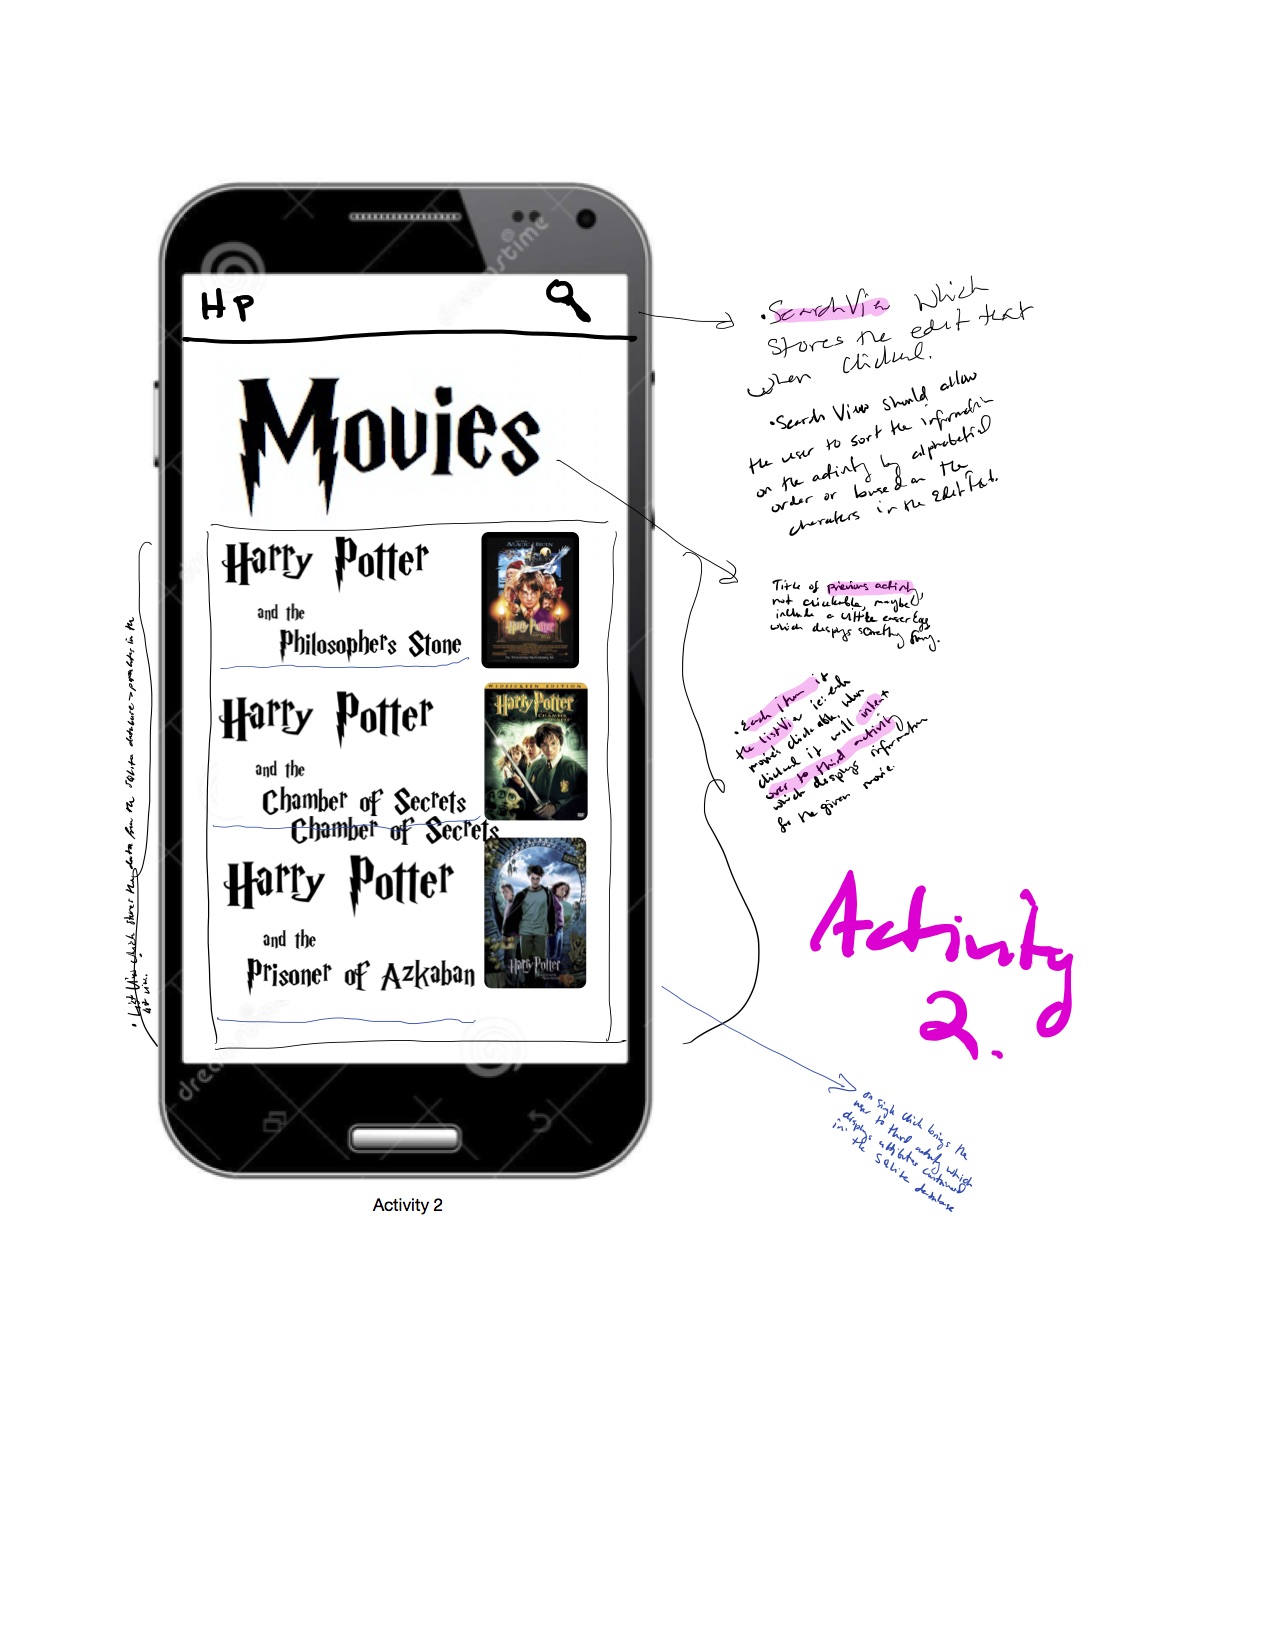 HP
Movies
Harry Potter
and the
Philosophers Stone
Harry Potter
and the
Chamber of Secrets
Chamber of Secrets
Harry Potter
and the
Prisoner of Azkaban
WIDESCREEN EDITION
Harry Potter
Harry Potter
Harry Potter
dreamstime
Activity 2
• SearchView which
stores the edit text
when clicked.
• Search View should allow
the user to sort the information
on the activity by alphabetical
order or based on the
charaters in the Edit Text.
Title of previous activity,
not clickable, maybe
include a little easer Egg
which displays something funny.
• Each item if
the listView ie: each
movie clickable, when
clicked it will intent
over to third activity
which displays information
for the given movie.
Activity
2.
on single click brings the
user to third activity which
displays attributes contained
in the SQlite database
• List View which stores the data from the SQLite database
list view.